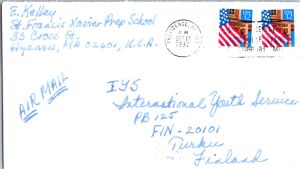 E. Kelley
St. Francis Xavier Prep School
33 Cross St.
Hyannis, MA 02601, U.S.A.
PROVIDENCE
PM
1997
32
32
AIR MAIL
IYS
International Youth Service
PB 125
FIN-20101
Turku
Finland